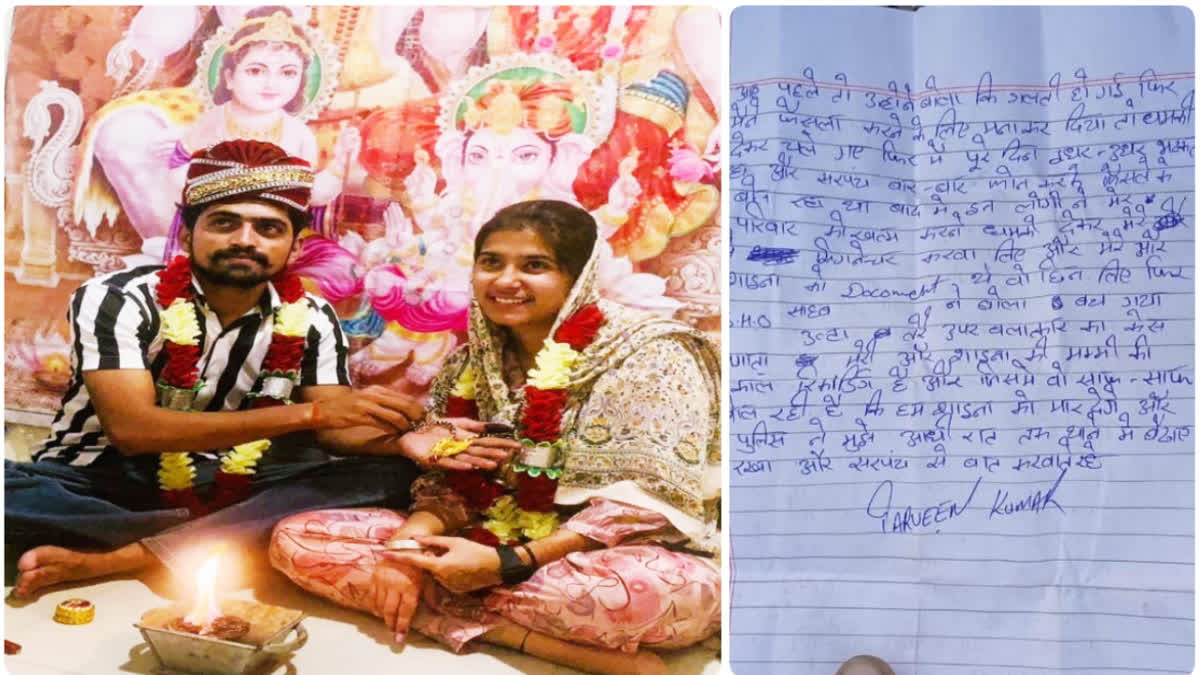 पहले तो उन्होंने बोला कि गलती हो गई फिर
मैंने फैसला करने के लिए मना कर दिया तो धमकी
देकर चले गए फिर मैं पूरे दिन इधर-उधर
और सरपंच बार-बार फोन करके फैसले के
बोल रहा था बाद में इन लोगों ने मेरे
परिवार को खत्म करने धमकी देकर मेरे
करवा लिए और मेरे और
को Document थे वो छिन लिए फिर
S.H.O साहब ने बोला बच गया
उल्टा तेरे उपर बलात्कार का केस
मेरी और शाइना की मम्मी की
कॉल रिकॉर्डिंग है और जिसमे वो साफ-साफ
बोल रही है कि हम शाइना को मार देंगे और
पुलिस ने मुझे आधी रात तक थाने मे बैठाए
रखा और सरपंच से बात करवाते रहे
PARVEEN KUMAR